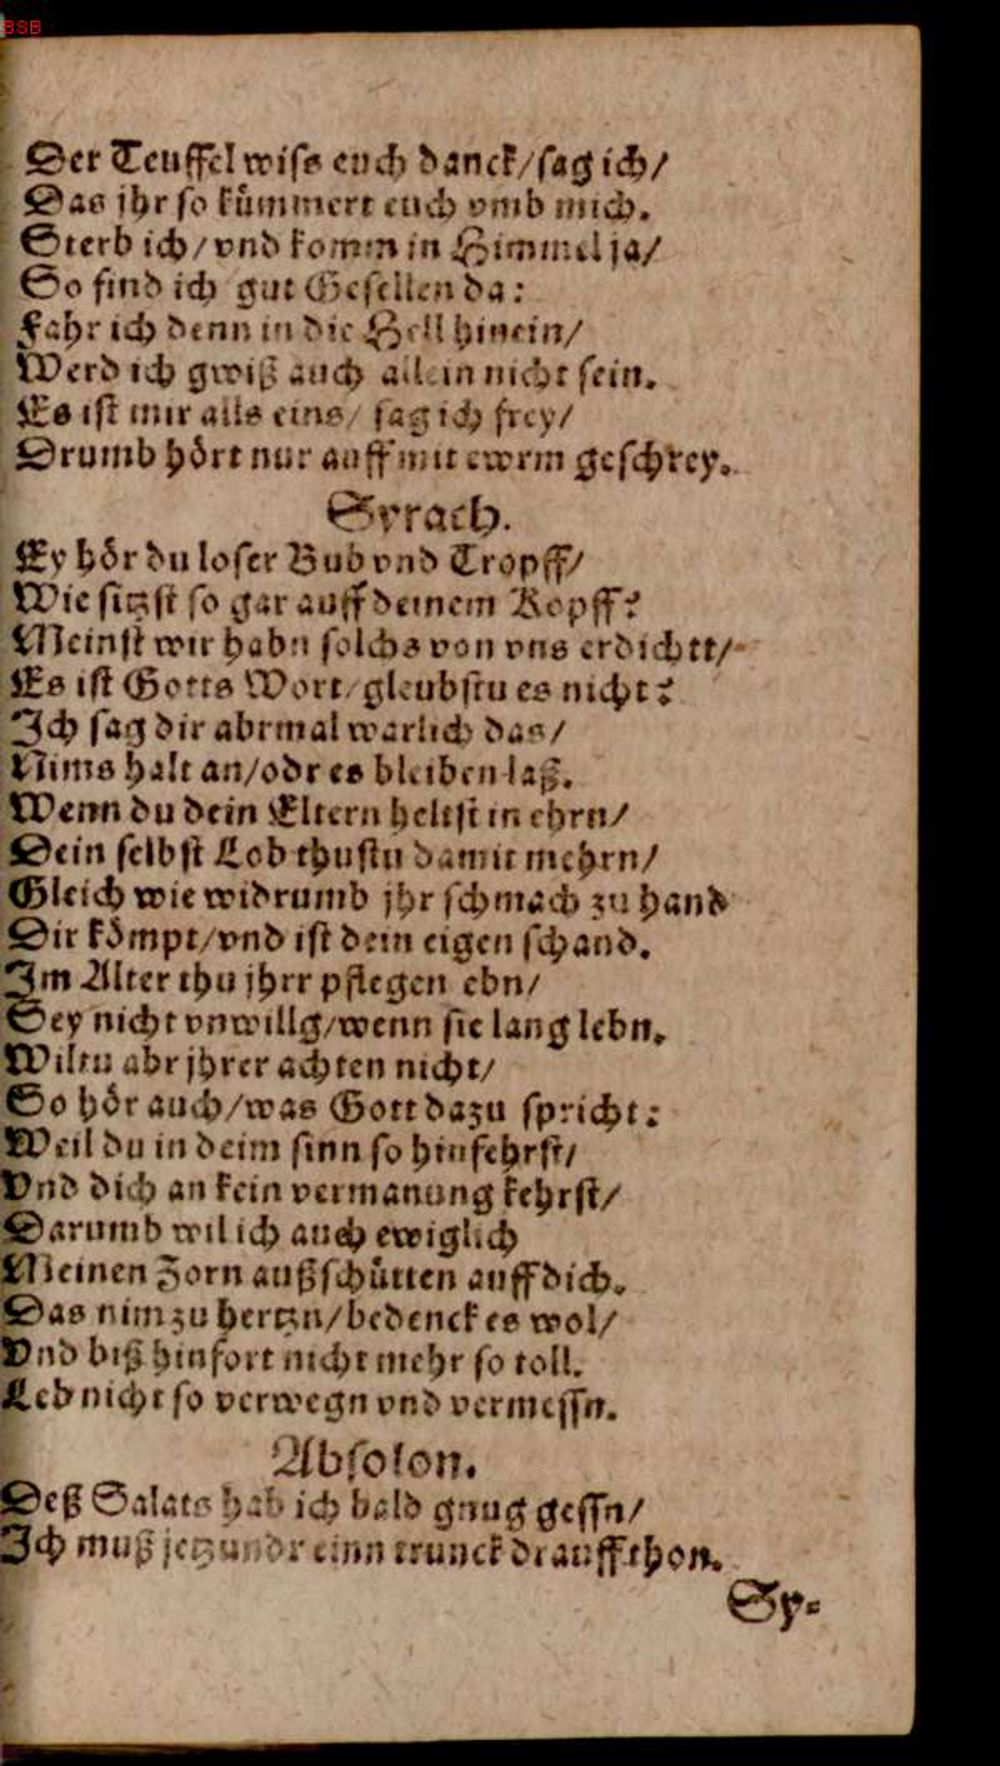 BSB
Der Teuffel wiss euch danck/sag ich/
Das jhr so kům̃ert euch vmb mich.
Sterb ich/vnd komm in Himmel ja/
So find ich gut Gesellen da:
Fahr ich denn in die Hell hinein/
Werd ich gwiß auch allein nicht sein.
Es ist mir alls eins/ sag ich frey/
Drumb hört nur auff mit ewrm geschrey.
Syrach.
Ey hör du loser Bub vnd Tropff/
Wie sitzst so gar auff deinem Kopff?
Meinst wir habn solchs von vns erdichtt/
Es ist Gotts Wort/gleubstu es nicht?
Ich sag dir abrmal warlich das/
Nims halt an/odr es bleiben laß.
Wenn du dein Eltern heltst in ehrn/
Dein selbst Lob thustu damit mehrn/
Gleich wie widrumb jhr schmach zu hand
Dir kömpt/vnd ist dein eigen schand.
Im Alter thu jhrr pflegen ebn/
Sey nicht vnwillg/wenn sie lang lebn.
Wiltu abr jhrer achten nicht/
So hör auch/was Gott dazu spricht:
Weil du in deim sinn so hinfehrst/
Vnd dich an kein vermanung kehrst/
Darumb wil ich auch ewiglich
Meinen Zorn außschütten auff dich.
Das nim zu hertzn/bedenck es wol/
Vnd biß hinfort nicht mehr so toll.
Leb nicht so verwegn vnd vermessn.
Absolon.
Deß Salats hab ich bald gnug gessn/
Ich muß jetzundr einn trunck drauff thon.
Sy-